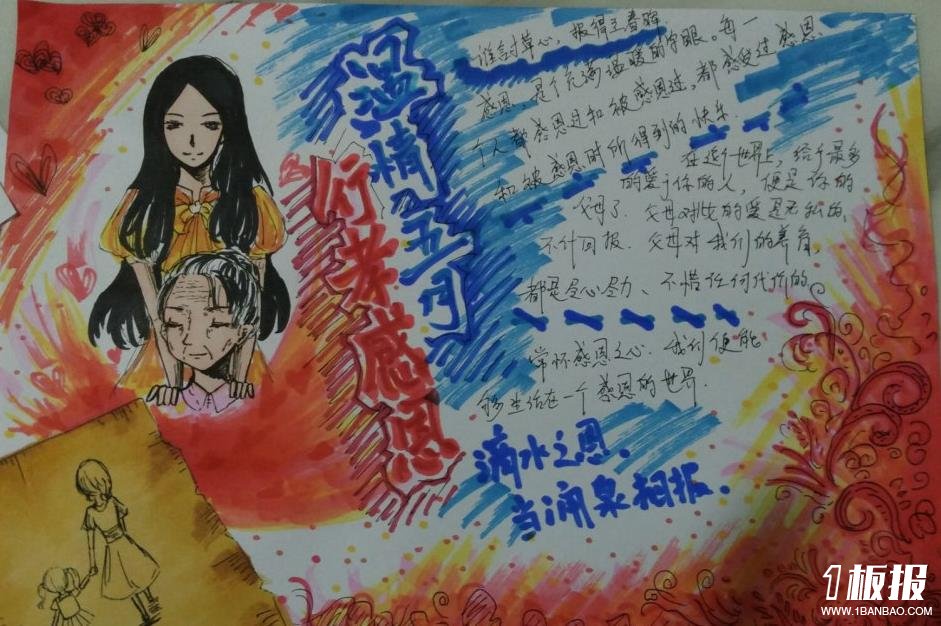 温情五月
行孝感恩
谁言寸草心，报得三春晖
感恩、是个充满温暖的字眼。每一
个人都感恩过和被感恩过，都感受过感恩
和被感恩时所得到的快乐.
在这个世界上，给予最多
的爱予你的人，便是你的
父母了.父母对的爱是无私的、
不什回报.父母对我们的养育，
都是尽心尽力、不惜任何代价的
常怀感恩之心.我们便能
够生活在一个感恩的世界.
滴水之恩、
当涌泉相报.
1板报
WWW.1BANBAO.COM